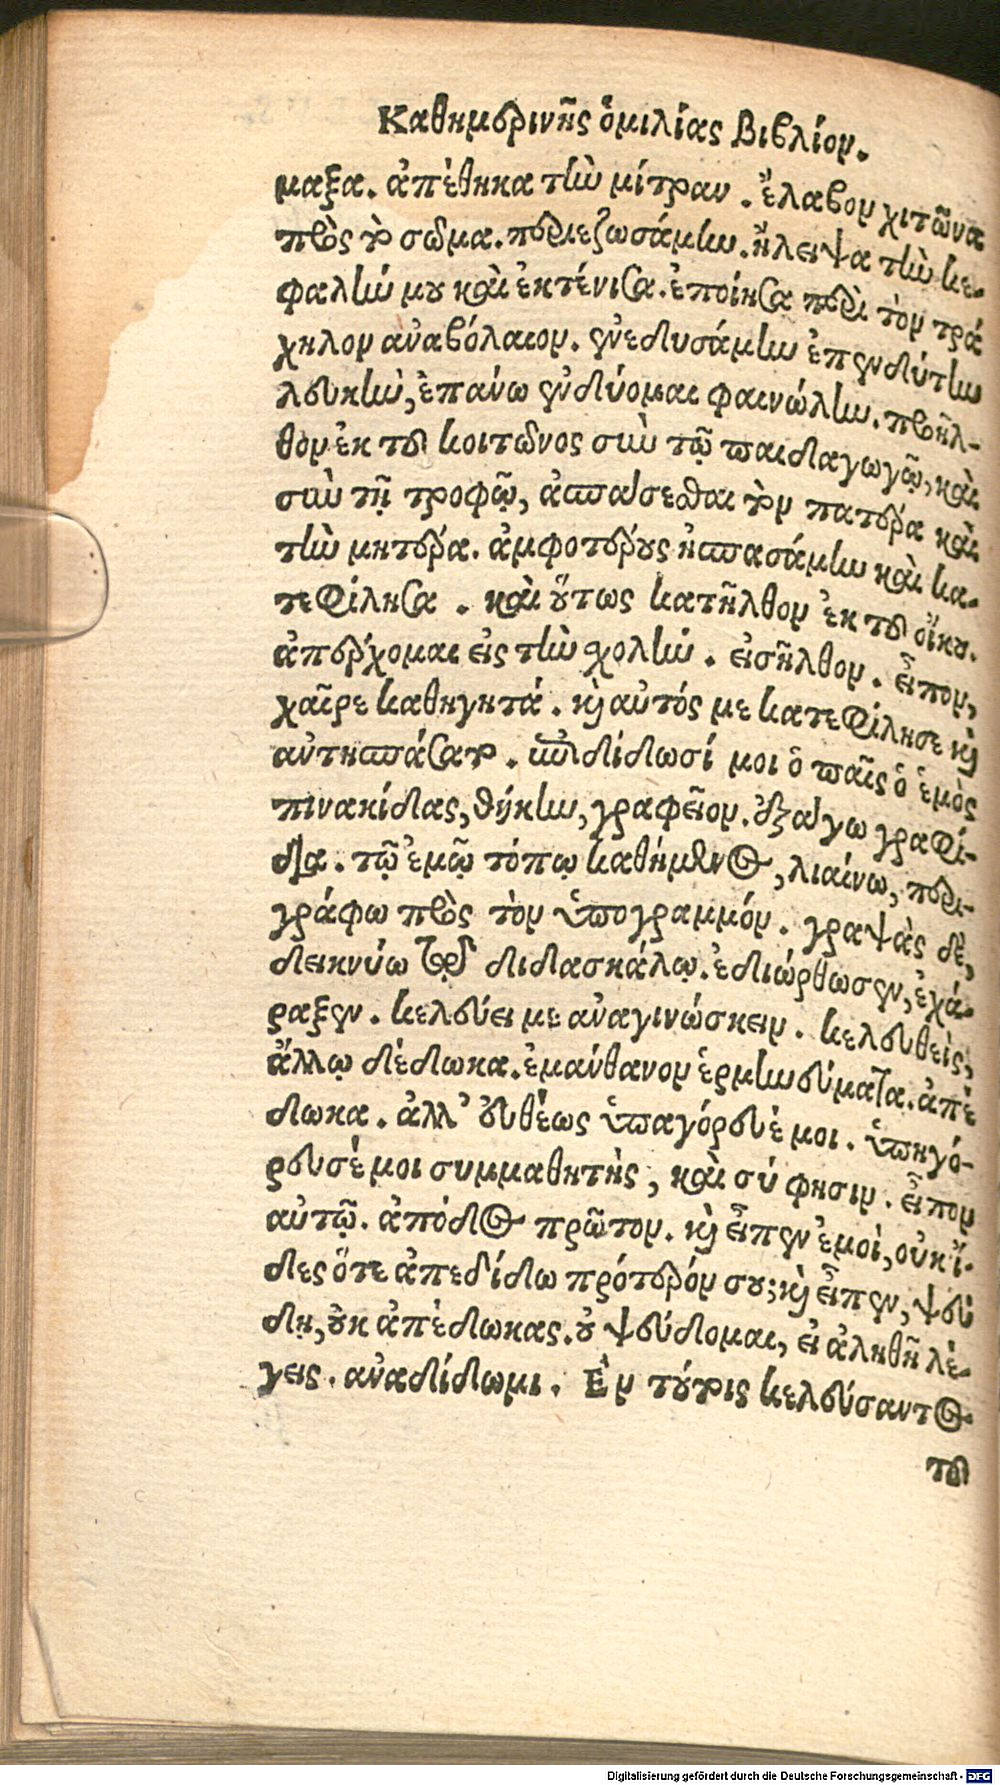 Καθημερινῆς ὁμιλίας Βιβλίον.
μαξα. ἀπέθηκα τὴν μίτραν. ἔλαβον χιτῶνα
πρὸς τὸ σῶμα. περιεζωσάμην. ἤλειψα τὴν κε-
φαλήν μου καὶ ἐκτένισα. ἐποίησα περὶ τὸν τρά
χηλον ἀναβόλαιον. ἐνεδυσάμην ἐπενδύτην
λευκὴν, ἐπάνω ἐνδύομαι φαινώλην. προῆλ-
θον ἐκ τοῦ κοιτῶνος σὺν τῷ παιδαγωγῷ, καὶ
σὺν τῇ τροφῷ, ἀσπάσεσθαι τὸν πατέρα καὶ
τὴν μητέρα. ἀμφοτέρους ἠσπασάμην καὶ κα-
τεφίλησα. καὶ οὕτως κατῆλθον ἐκ τοῦ οἴκου.
ἀπέρχομαι εἰς τὴν σχολήν. εἰσῆλθον. εἶπον,
χαῖρε καθηγητά. καὶ αὐτός με κατεφίλησε καὶ
αὐτησπάσατο. ἐπιδίδωσί μοι ὁ παῖς ὁ ἐμὸς
πινακίδας, θήκην, γραφεῖον. ἐξάγω γραφί-
δια. τῷ ἐμῷ τόπῳ καθήμενος, λιαίνω, περι-
γράφω πρὸς τὸν ὑπογραμμόν. γραψὰς δὲ,
δεικνύω τῷ διδασκάλῳ. ἐδιώρθωσεν, ἐχά-
ραξεν. κελεύει με ἀναγινώσκειν. κελευθεὶς,
ἄλλῳ δέδωκα. ἐμαύθανον ἑρμηνεύματα. ἀπέ
δωκα. ἀλλ' εὐθέως ὑπαγόρευέ μοι. ὑπηγό-
ρευσέ μοι συμμαθητής, καὶ σύ φησιν. εἶπον
αὐτῷ. ἀπόδος πρῶτον. καὶ εἶπεν ἐμοὶ, οὐκ ἴ-
δες ὅτε ἀπεδίδω πρότερόν σου; καὶ εἶπεν, ψεύ
δῃ, οὐκ ἀπέδωκας. οὐ ψεύδομαι, εἰ ἀληθῆ λέ-
γεις. ἀναδίδωμι. Ἐν τούτοις κελεύσαντος
τοῦ
Digitalisierung gefördert durch die Deutsche Forschungsgemeinschaft - DFG